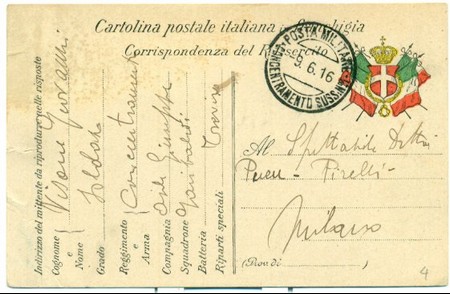 Cartolina postale italiana in franchigia
Corrispondenza del R. esercito
POSTA MILITARE
CONCENTRAMENTO SUSSIST
9.6.16
Indirizzo del mittente da riprodurre nelle risposte
Cognome e Nome
Visone
Grado
Soldato
Reggimento e Arma
Concentrament
Compagnia
Squadrone
Batteria
Garibaldi
Riparti speciali
Al Spettabile Ditta
Pirelli
Milano
(Prov. di )
4